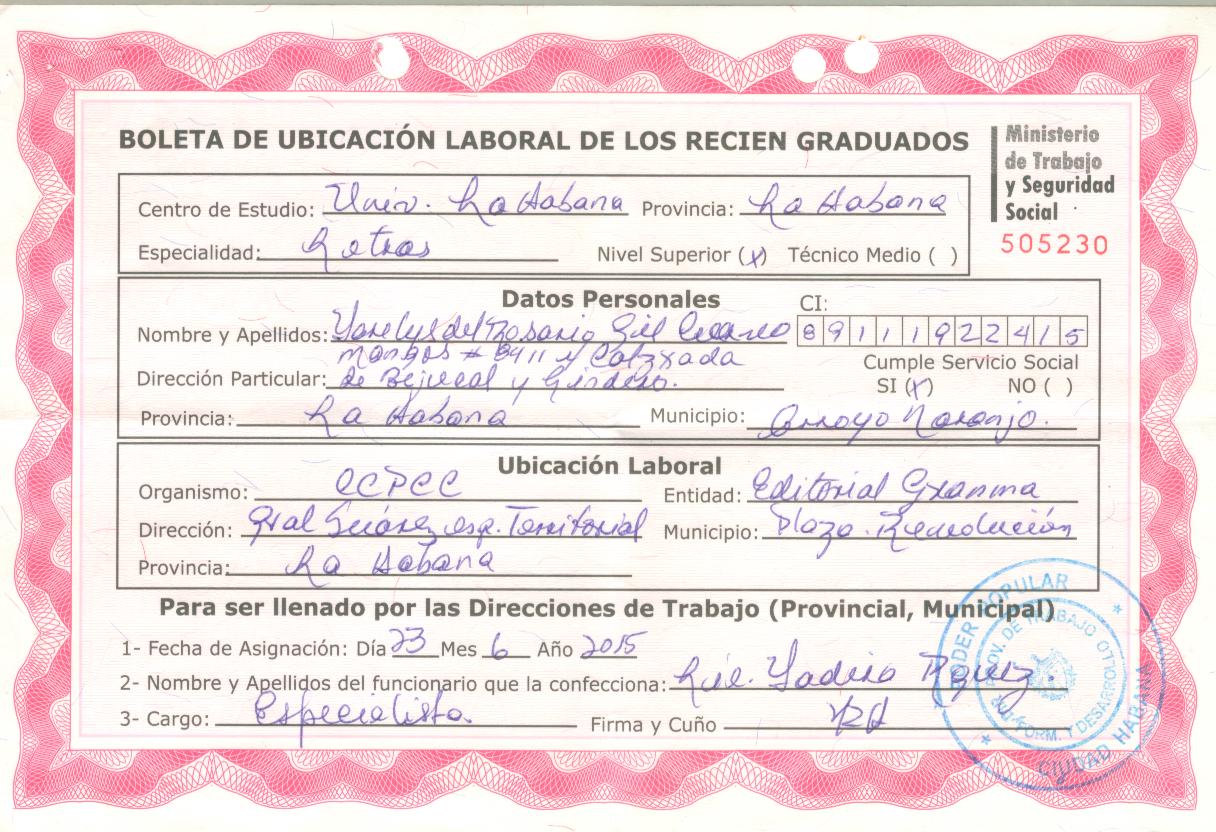 BOLETA DE UBICACIÓN LABORAL DE LOS RECIEN GRADUADOS
Ministerio
de Trabajo
y Seguridad
Social
505230
Centro de Estudio: Univ. La Habana Provincia: La Habana
Especialidad: Letras Nivel Superior (x) Técnico Medio ( )
Datos Personales
CI: 89111922415
Nombre y Apellidos: Yanelys del Rosario Gil
Mangos # 8911 y Calzxada
Dirección Particular: de Bejucal y
Cumple Servicio Social
SI (x) NO ( )
Provincia: La Habana Municipio: Arroyo Naranjo.
Ubicación Laboral
Organismo: CCPCC Entidad: Editorial Granma
Dirección: Gral Suárez esq. Territorial Municipio: Plaza. Revolución
Provincia: La Habana
Para ser llenado por las Direcciones de Trabajo (Provincial, Municipal)
1- Fecha de Asignación: Día 23 Mes 6 Año 2015
2- Nombre y Apellidos del funcionario que la confecciona: Lic. Yadira
3- Cargo: Especialista Firma y Cuño
PODER POPULAR
CIUDAD HABANA